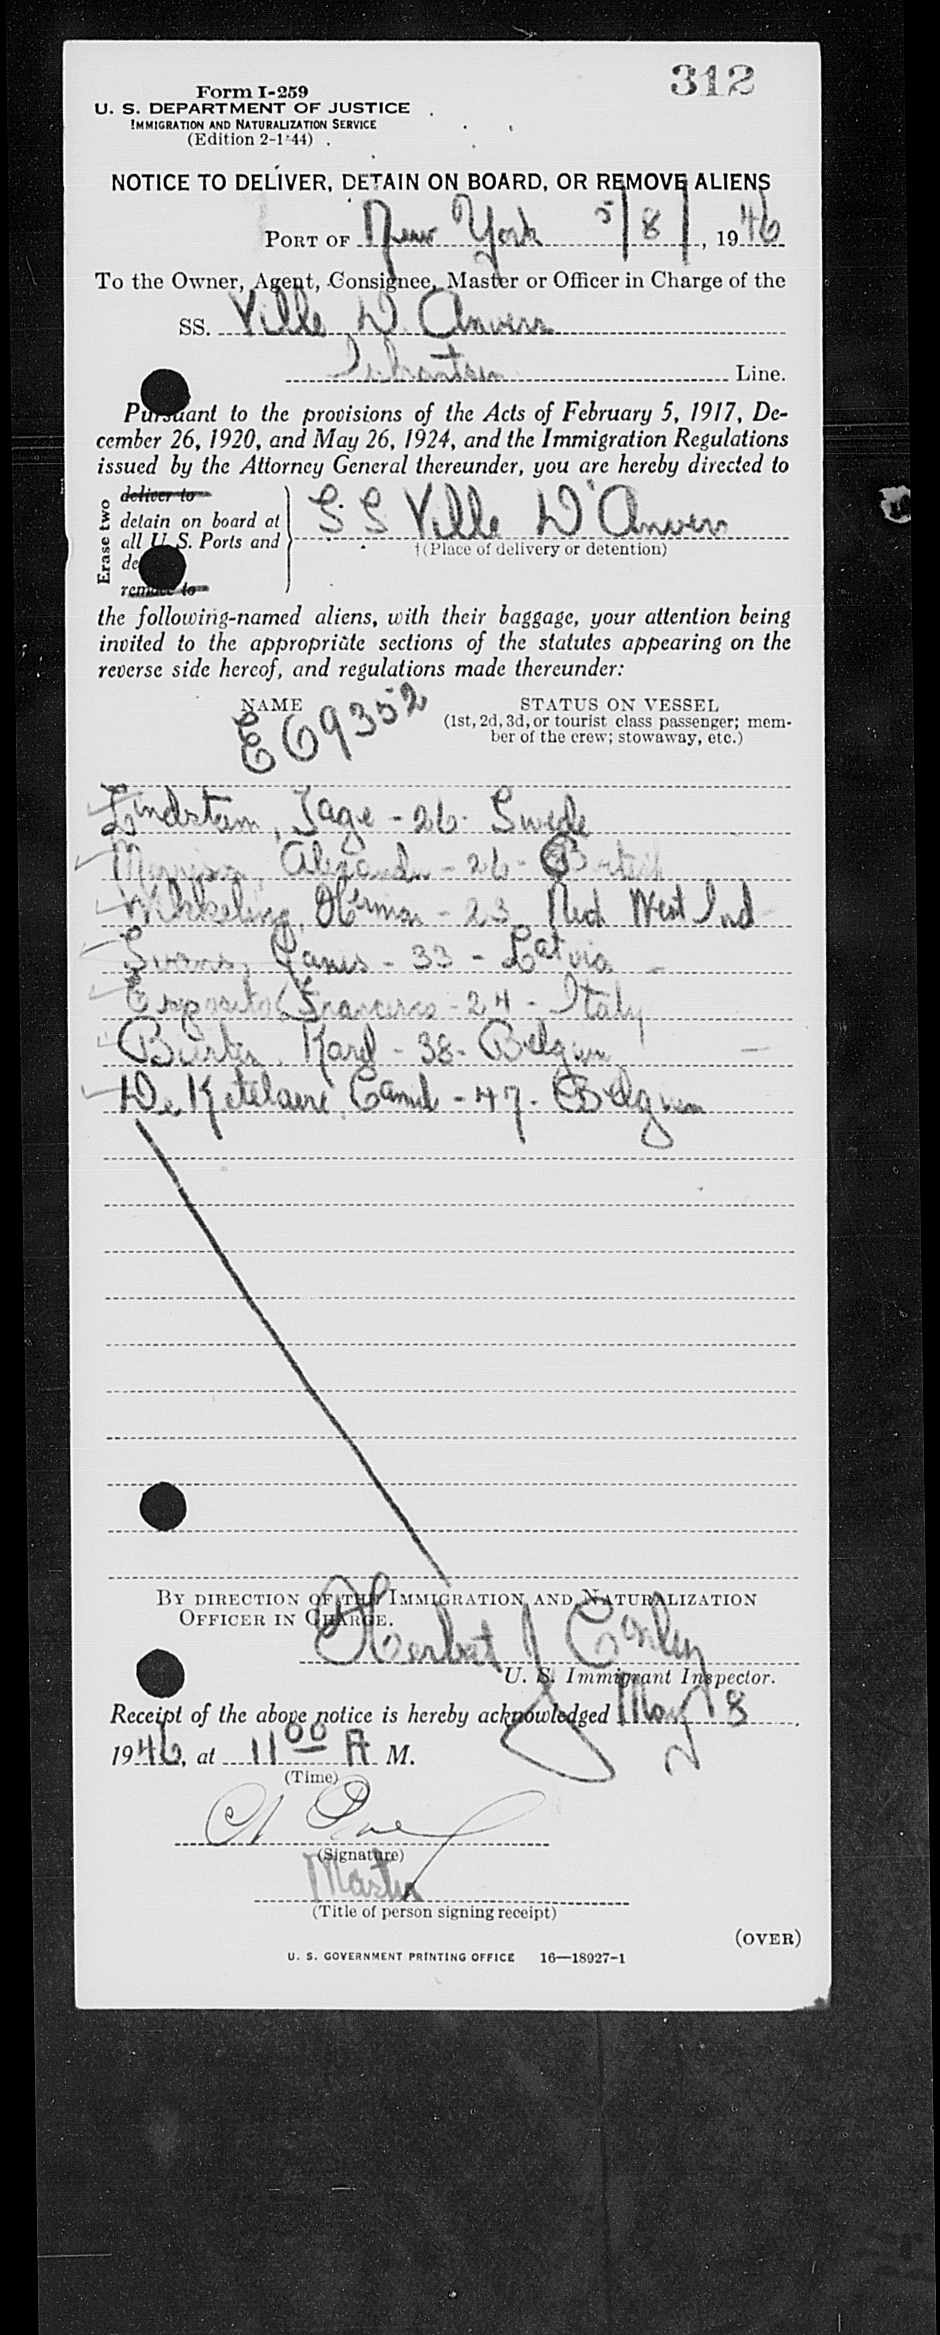 312
Form I-259
U. S. DEPARTMENT OF JUSTICE
IMMIGRATION AND NATURALIZATION SERVICE
(Edition 2-1-44)
NOTICE TO DELIVER, DETAIN ON BOARD, OR REMOVE ALIENS
PORT OF New York 5/8/, 1946
To the Owner, Agent, Consignee, Master or Officer in Charge of the
SS. Ville D Anvers
Line.
Pursuant to the provisions of the Acts of February 5, 1917, De-
cember 26, 1920, and May 26, 1924, and the Immigration Regulations
issued by the Attorney General thereunder, you are hereby directed to
Erase two
deliver to
detain on board at
all U. S. Ports and
remove to
SS Ville D'Anvers
†(Place of delivery or detention)
the following-named aliens, with their baggage, your attention being
invited to the appropriate sections of the statutes appearing on the
reverse side hereof, and regulations made thereunder:
NAME
STATUS ON VESSEL
(1st, 2d, 3d, or tourist class passenger; mem-
ber of the crew; stowaway, etc.)
E69352
Lindstam, Tage - 26 - Swede
Alexander - 26 - British
Wikkeling, Herman - 23 Ned West Ind
Janis - 33 - Latvia
Esposito, Francesco - 24 - Italy
Karel - 38 - Belgium
De Ketelaere, Camil - 47 - Belgium
BY DIRECTION OF THE IMMIGRATION AND NATURALIZATION
OFFICER IN CHARGE.
Herbert J Conley
U. S. Immigrant Inspector.
Receipt of the above notice is hereby acknowledged May 8,
1946, at 11 00 A M.
(Time)
(Signature)
Master
(Title of person signing receipt)
(OVER)
U. S. GOVERNMENT PRINTING OFFICE 16—18927-1